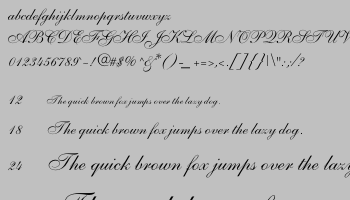 abcdefghijklmnopqrstuvwxyz
ABCDEFGHIJKLMNOPQRSTUV
0123456789-!@#$%^&*()-_+=>,<.[]{}|\":;/?
12 The quick brown fox jumps over the lazy dog.
18 The quick brown fox jumps over the lazy dog.
24 The quick brown fox jumps over the lazy